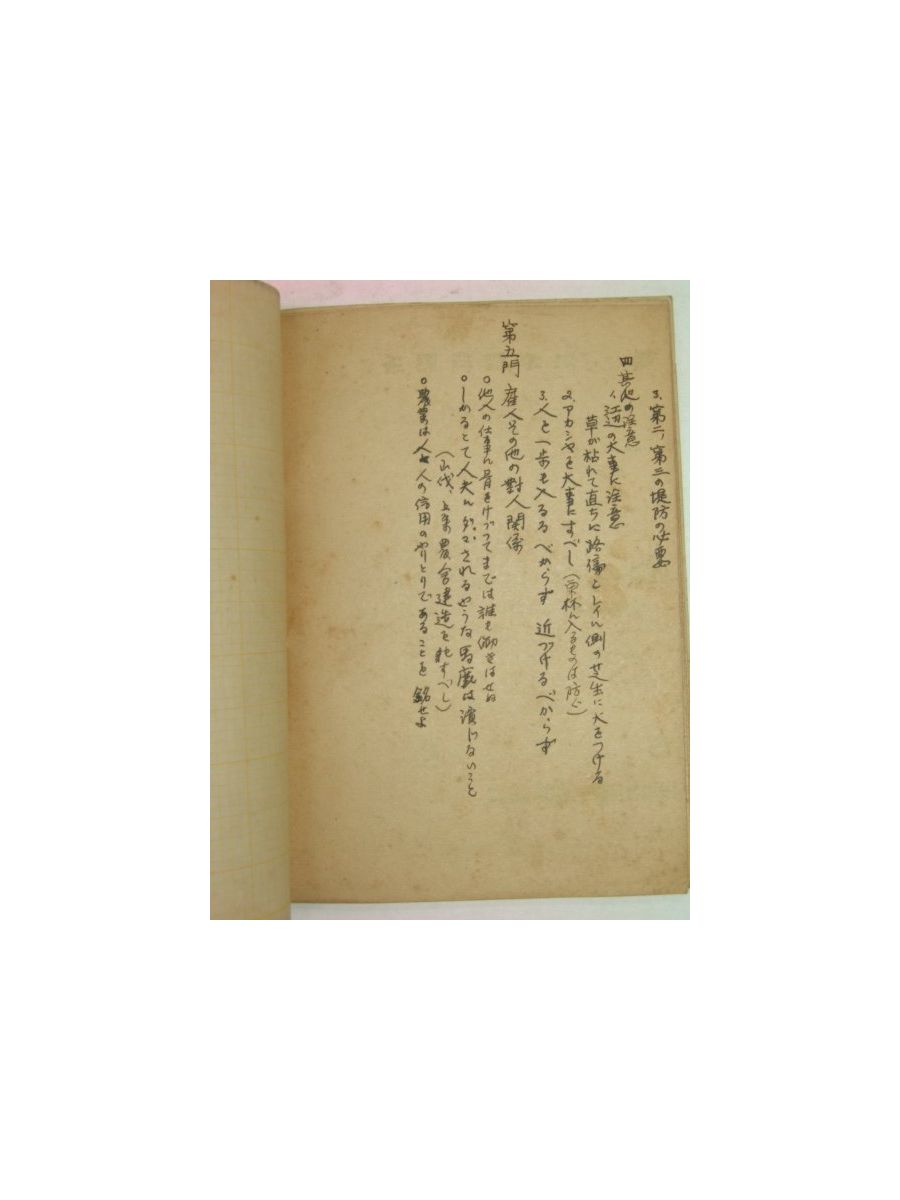 3、第二、第三の堤防の必要
四 其他の注意
1、江辺の火事に注意
草が枯れて直ちに路傍とレイル側の芝生に火をつける
2、アカシヤを大事にすべし（入るものは防ぐ）
3、人を一歩も入るるべからず 近づけるべからず
第五門 雇人その他の對人関係
○他人の仕事に骨をけづつてまでは誰も働きはせぬ
○しかるとて人夫にされるやうな馬鹿は演じないこと
（農舎建造を すべし）
○農業は人と人の信用のやりとりであることを銘せよ